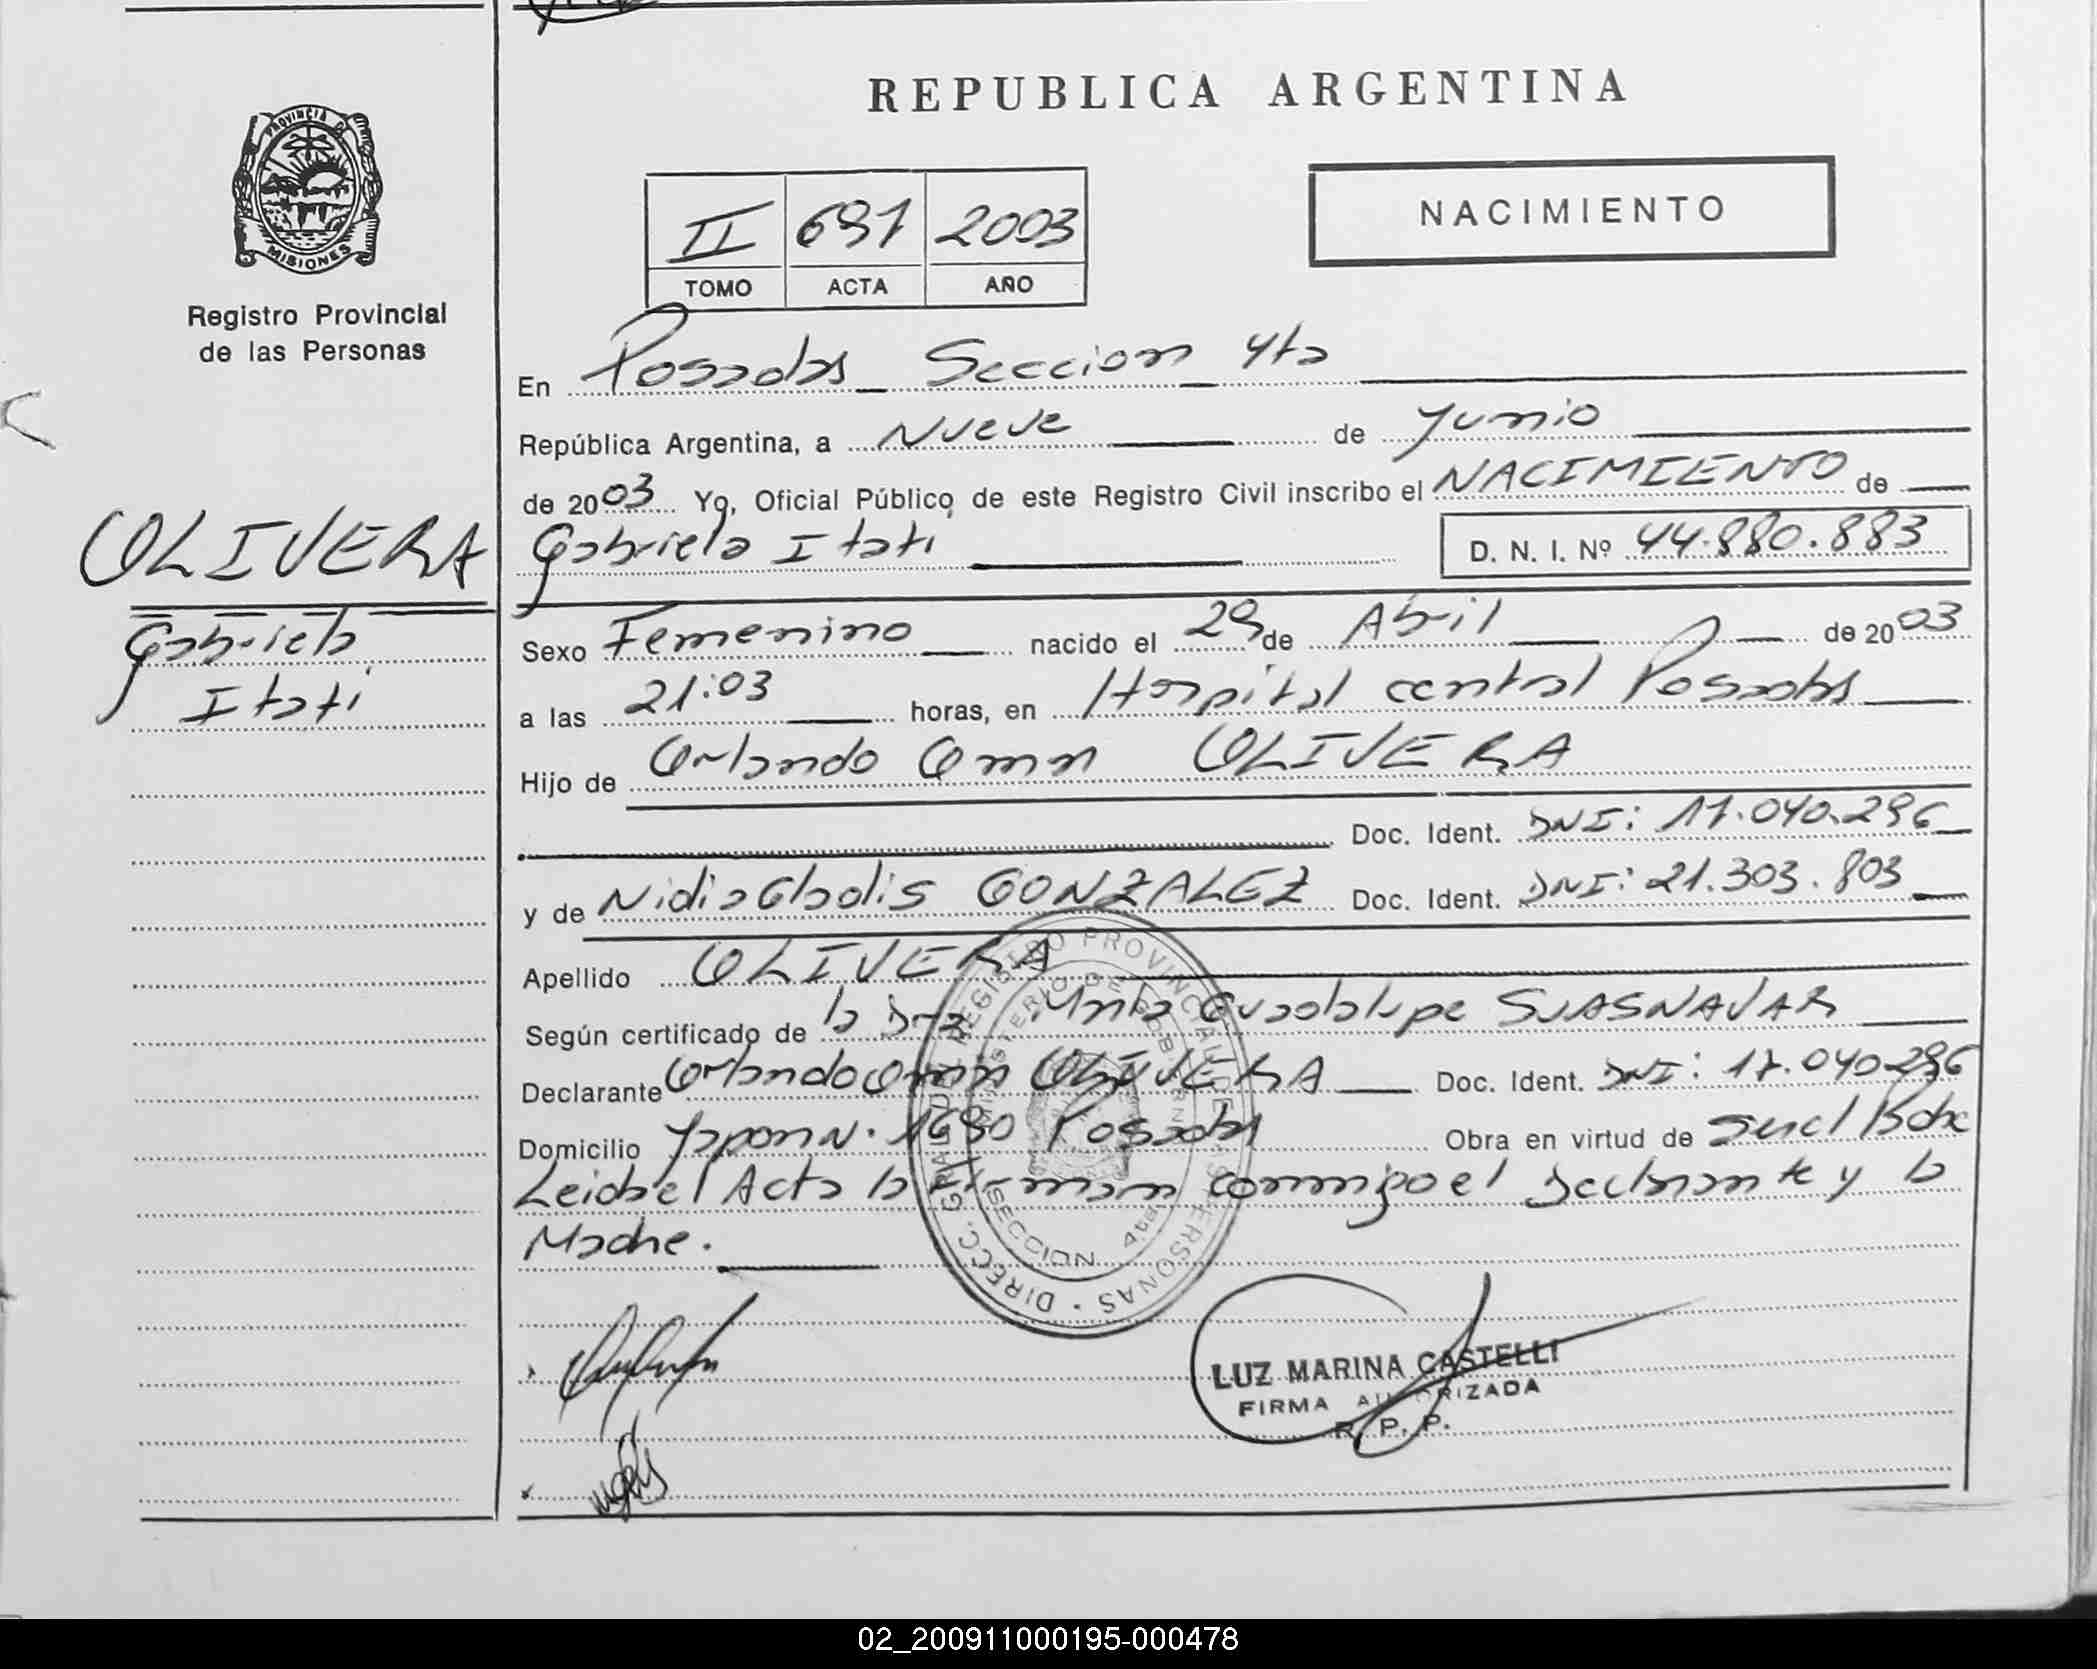 REPUBLICA ARGENTINA
PROVINCIA DE
MISIONES
Registro Provincial
de las Personas
II 691 2003
TOMO ACTA AÑO
NACIMIENTO
En Posadas Seccion 4ta
República Argentina, a Nueve de Junio
de 2003 Yo, Oficial Público de este Registro Civil inscribo el NACIMIENTO de
Gabriela Itati D. N. I. Nº 44.880.883
OLIVERA
Gabriela
Itati
Sexo Femenino nacido el 29 de Abril de 2003
a las 21:03 horas, en Hospital central Posadas
Hijo de Orlando Omar OLIVERA
Doc. Ident. DNI: 17.040.296
y de Nidia Gladis GONZALEZ Doc. Ident. DNI: 21.303.803
Apellido OLIVERA
Según certificado de la Dra. Guadalupe SUASNAVAR
Declarante Orlando Omar OLIVERA Doc. Ident. DNI: 17.040.296
Domicilio Japon N. 1690 Posadas Obra en virtud de ser el Padre
Leida el Acta la Firman conmigo el Declarante y la
Madre.
DIRECC. GRAL. DEL REGISTRO PROVINCIAL DE LAS PERSONAS
MINISTERIO DE GOBIERNO
SECCION 4ta
LUZ MARINA CASTELLI
FIRMA AUTORIZADA
R. P. P.
02_200911000195-000478